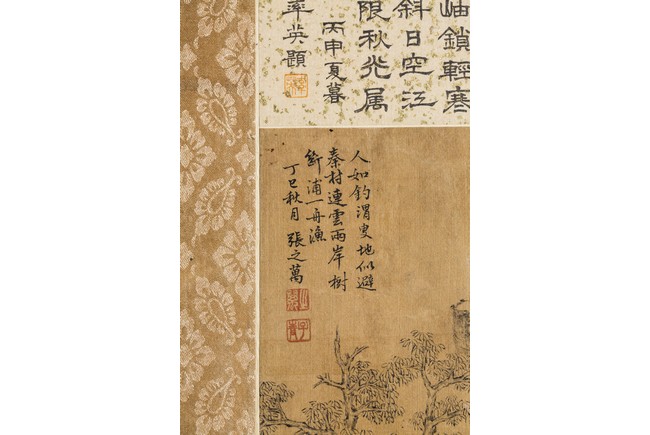 岫鎖輕寒
斜日空江
限秋光属
丙申夏暮
英題
人如釣渭叟地似避
秦村連雲兩岸樹
斷浦一舟漁
丁巳秋月 張之萬
之萬
子青